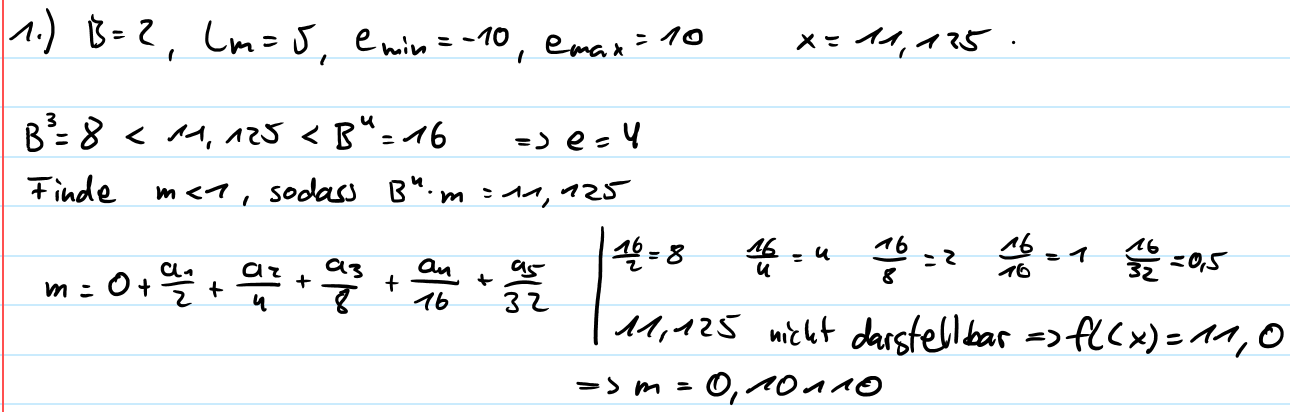 1.) B = 2, lm = 5, emin = -10, emax = 10 x = 11,125.
B³ = 8 < 11,125 < B⁴ = 16 => e = 4
Finde m < 1, sodass B⁴·m = 11,125
m = 0 + a₁/2 + a₂/4 + a₃/8 + a₄/16 + a₅/32 | 16/2 = 8 16/4 = 4 16/8 = 2 16/16 = 1 16/32 = 0,5
11,125 nicht darstellbar => fl(x) = 11,0
=> m = 0,10110